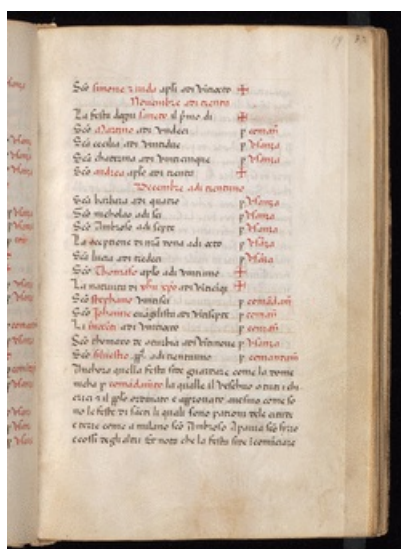 Sco simone z iuda apli adi vintiocto ✠
Nouembre adi trenta
La festa dogni sancto il pmo di ✠
Sco Martino adi vndeci p coman
Sca cecilia adi vintidue p vsanza
Sca chaterina adi vinticinque p vsanza
Sco andrea aplo adi trenta ✠
Decembre adi trentuno
Sca barbara adi quatro p vsanza
Sco nicholao adi sei p vsanza
Sco Ambroso adi septe p vsanza
La dona adi octo p vsanza
Sca lucia adi tredeci p vsanza
Sco Thomaso aplo adi vintiuno ✠
La natiuita di xpo adi ✠
Sco stephano vintisei p comadam
Sco Johanne euagelista adi vintisepte p coman
Li adi vintiocto p coman
Sco thomaxo de adi vintinoue p vsanza
Sco siluestro adi trentuno p comantam
Anchora quella festa side guardare come la dome
nicha p comadamto la qualle il veschuo o tuti i chi
erici z il pplo ordinato e approuato anesuno come so
no le feste di sacti li quali sono patroni dele citate
e terre come a milano sco Ambroso Apauia sco siro
e cossi degli altri Et nota che la festa side cominciare